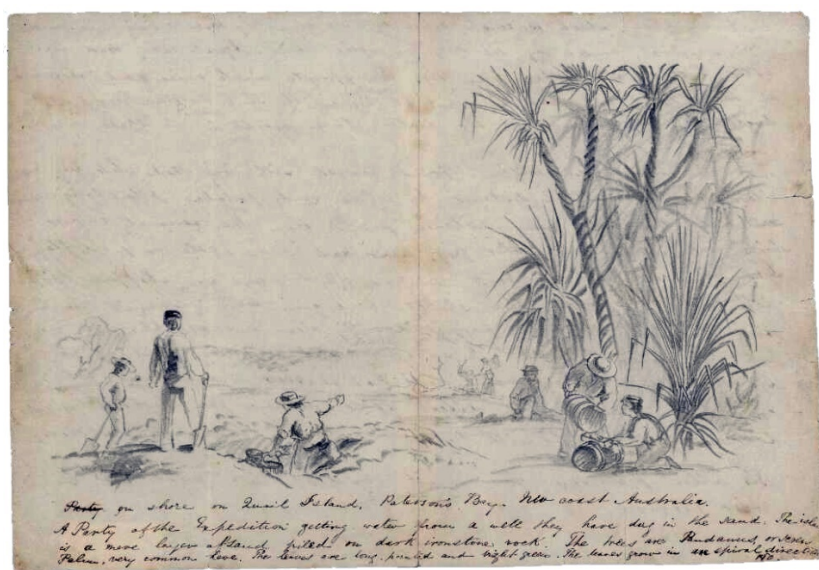 Party on shore on Quail Island, Paterson's Bay. NW coast Australia.
A Party of the Expedition getting water from a well they have dug in the sand. The
is a mere layer of sand, piled on dark ironstone rock. The trees are Pandanus, or Screw
Palm, very common here. The leaves are long, pointed and bright green. The leaves grow in an spiral direction